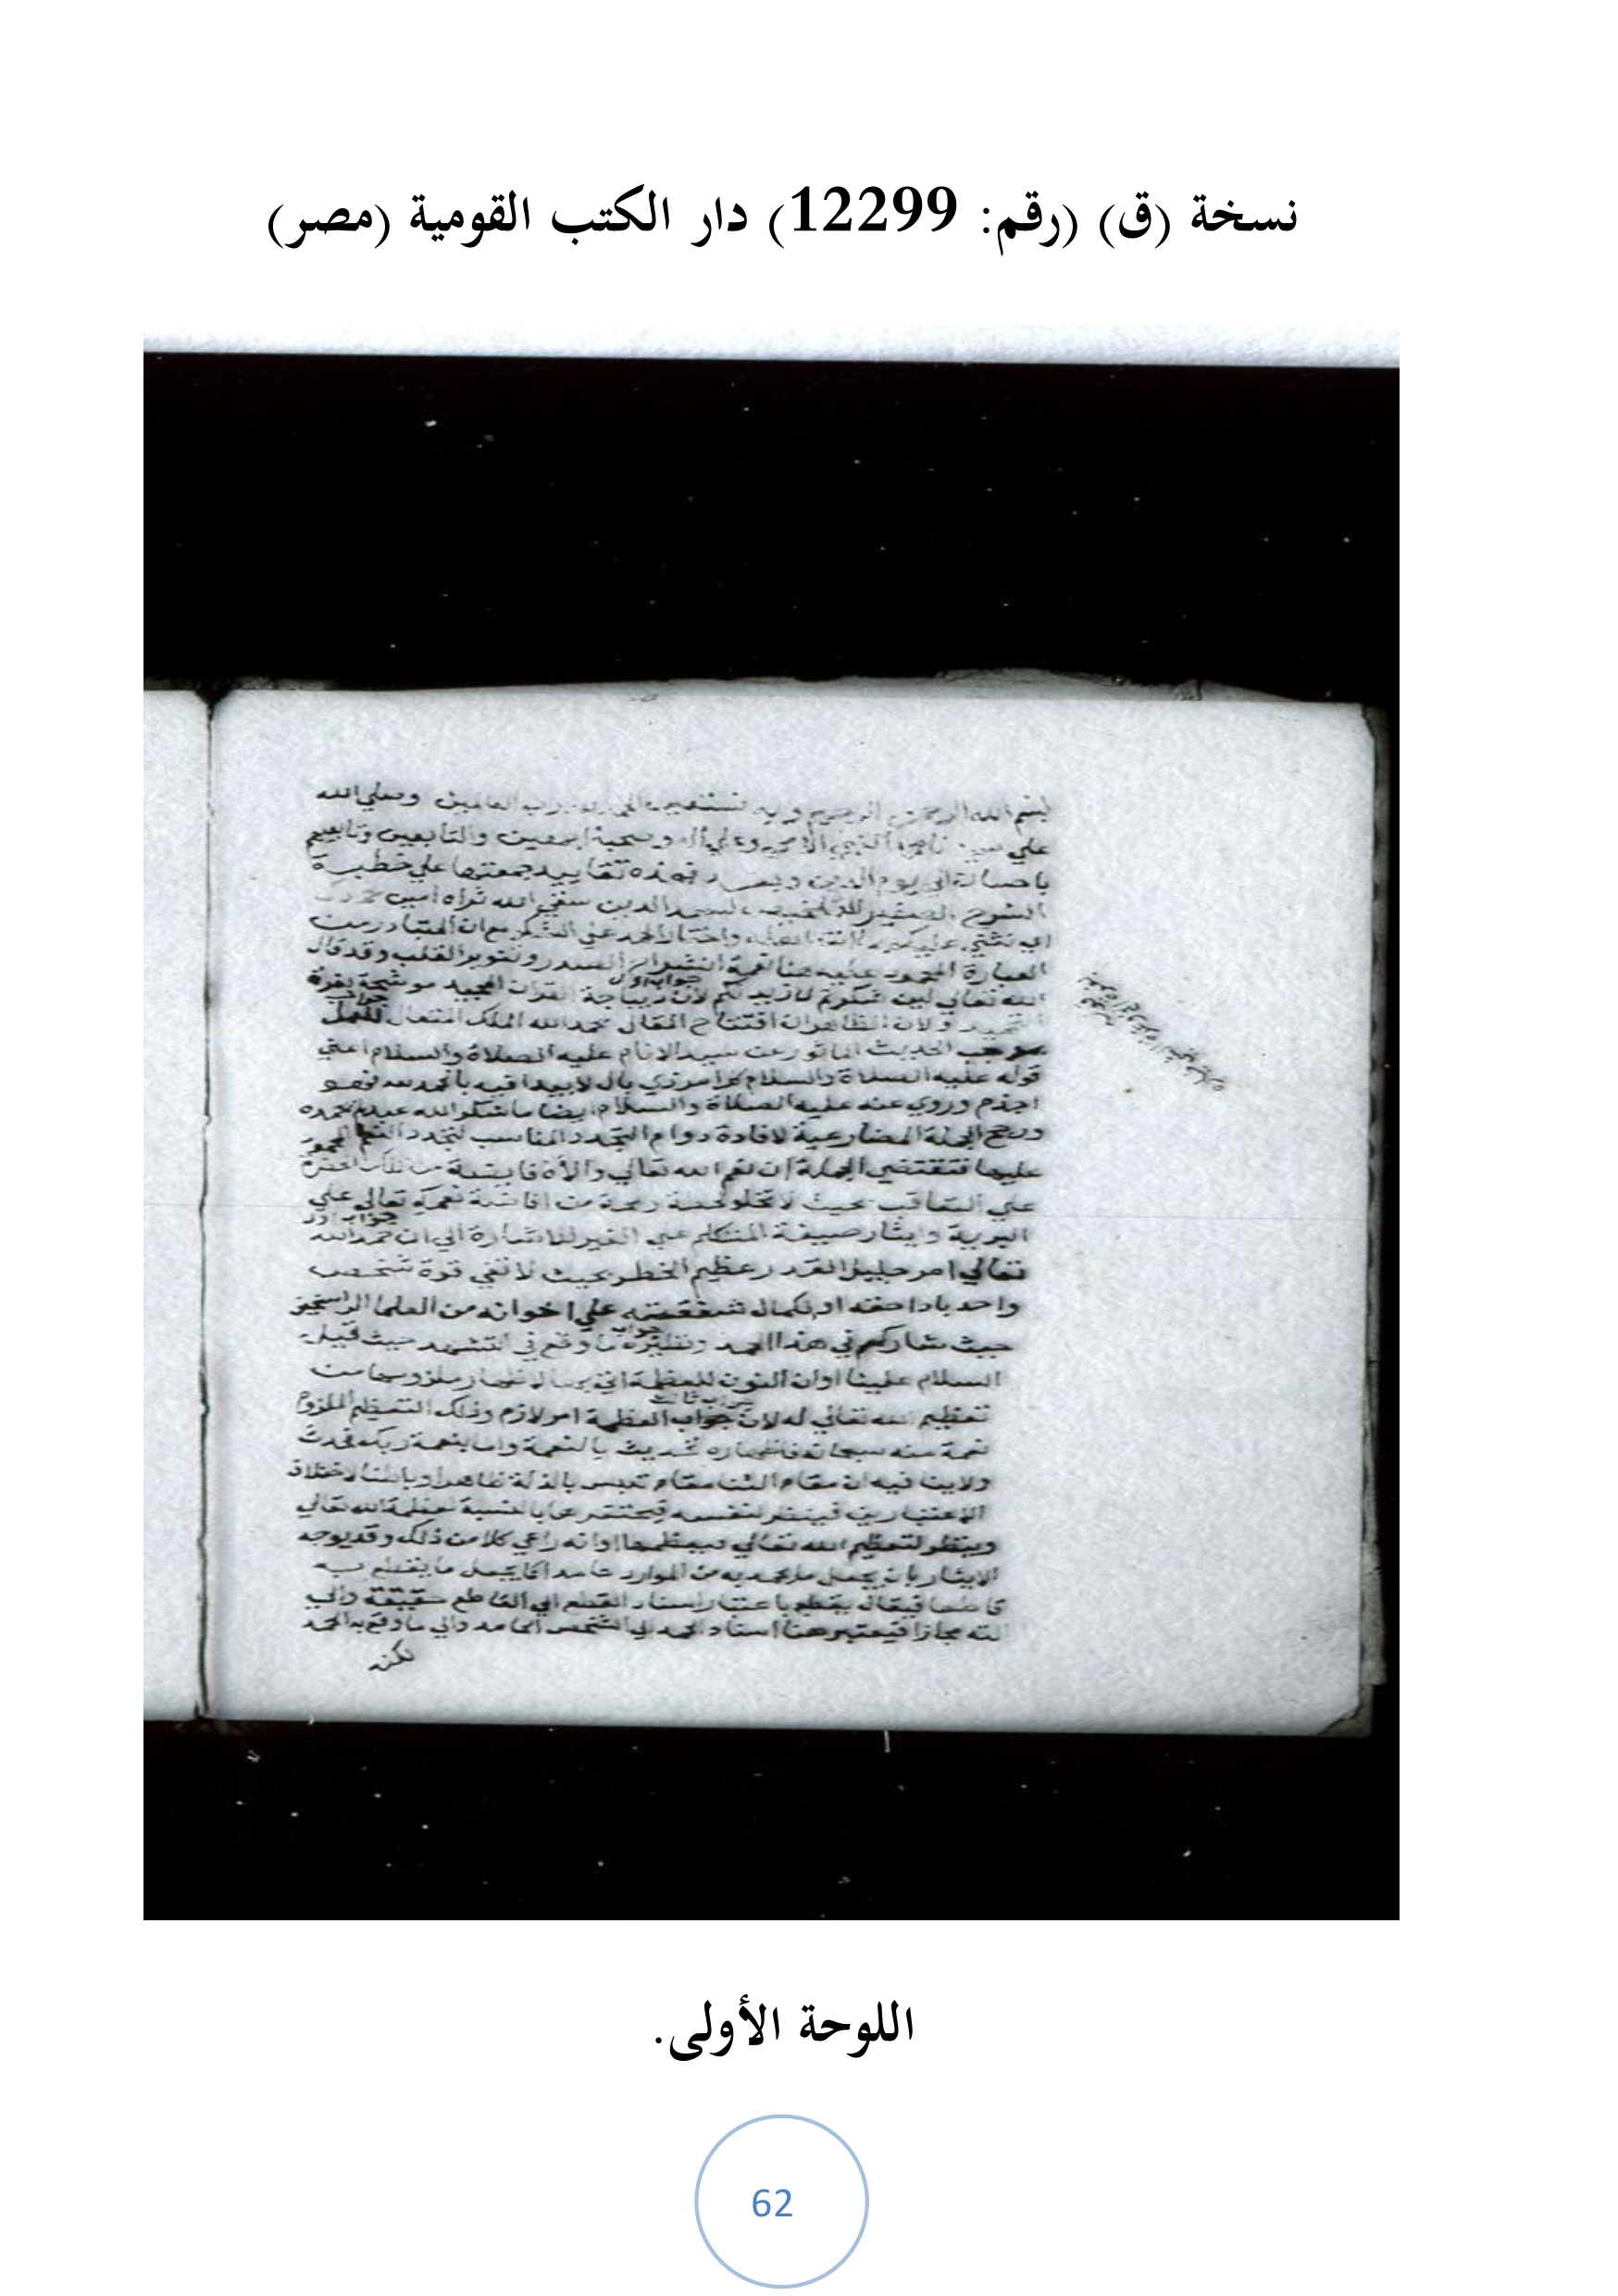 نسخة (ق) (رقم: 12299) دار الكتب القومية (مصر)
بسم الله الرحمن الرحيم وبه نستعين الحمد لله رب العالمين وصلى الله
على النبي وعلى اله وصحبه اجمعين والتابعين وتابعيهم
باحسان الى يوم الدين وبعد فهذه تقاييد جمعتها على خطبة
الشرح الصغير للتلخيص لسعد الدين سقى الله ثراه امين
واختار الحمد على الشكر مع ان المتبادر من
العبارة المحمود عليه هنا نعمة انشراح الصدر وتنوير القلب وقد قال
جواب اول
الله تعالى لين شكرتم لازيدنكم لان ديباجة القران المجيد موشحة بغرة
جواب
التحميد ولان الظاهر ان افتتاح المقال بحمد الله الملك المتعال للعمل
بموجب الحديث الماثور عن سيد الانام عليه الصلاة والسلام اعني
قوله عليه الصلاة والسلام كل امر ذي بال لا يبدا فيه بالحمد لله فهو
اجذم وروي عنه عليه الصلاة والسلام ايضا ما شكر الله عبد لم يحمده
ورجح الجملة المضارعية لافادة دوام التجدد المناسب لتجدد النعم المحمود
عليها فتقتضي الجملة ان نعم الله تعالى والاه فايضة
على التعاقب بحيث لا تخلو لحظة ولمحة من افاضة نعمه تعالى على
البرية وايثار صيغة المتكلم مع الغير للاشارة الى ان حمد الله
تعالى امر جليل القدر عظيم الخطر بحيث لا تفي قوة شخص
واحد باداء حقه او لكمال شفقته على اخوانه من العلما الراسخين
جواب
حيث شاركهم في هذا الحمد ونظيره ما وقع في التشهد حيث قيل
السلام علينا او ان النون للعظمة اتى بها لاظهار ملزومها من
جواب ثالث
تعظيم الله تعالى له لان جواب العظمة امر لازم وذلك التعظيم الملزوم
نعمة منه سبحانه فاظهاره تحديث بالنعمة واما بنعمة ربك فحدث
ولا ينافيه ان مقام الثنا مقام تلبس بالذلة ظاهرا وباطنا لاختلاف
الاعتبارين فينظر لنفسه فيحتقرها بالنسبة لعظمة الله تعالى
وينظر لتعظيم الله تعالى فيعظمها او انه راعى كلا من ذلك وقد يوجه
الايثار بان يجعل ما يحمد به من الموارد حامدا كما يجعل ما يقطع به
قاطعا فيقال يقطع باعتبار اسناد القطع الى القاطع حقيقة والى
الته مجازا فيعتبر هنا اسناد الحمد الى الشخص الحامد والى ما وقع به الحمد
لكنه
اللوحة الأولى.
62